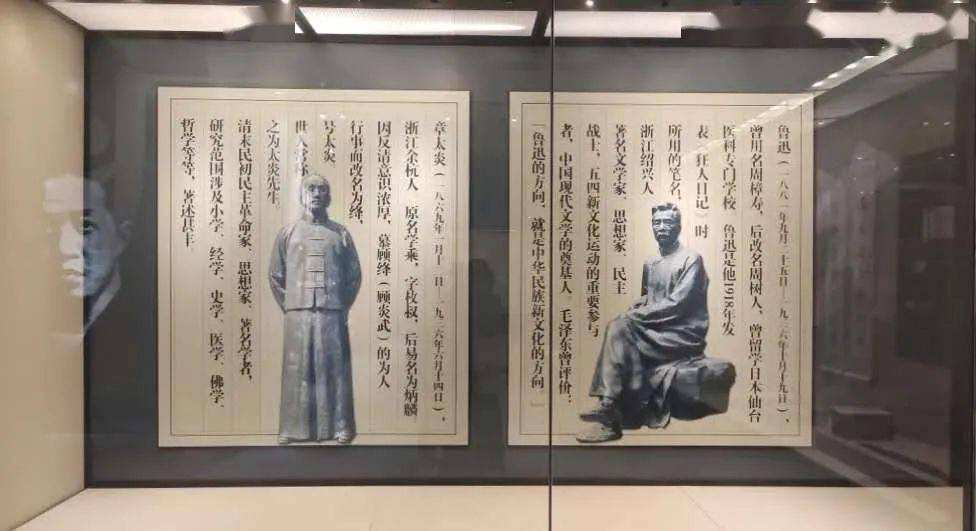 鲁迅（一八八一年九月二十五日—一九三六年十月十九日），
曾用名周樟寿，后改名周树人，曾留学日本仙台
医科专门学校 鲁迅是他1918年发
表《狂人日记》时
所用的笔名，
浙江绍兴人
著名文学家、思想家、民主
战士，五四新文化运动的重要参与
者，中国现代文学的奠基人。毛泽东曾评价：
「鲁迅的方向，就是中华民族新文化的方向。」
章太炎（一八六九年一月十二日—一九三六年六月十四日），
浙江余杭人 原名学乘，字枚叔，后易名为炳麟
因反清意识浓厚，慕顾绛（顾炎武）的为人
行事而改名为绛，
号太炎
世人常称
之为太炎先生。
清末民初民主革命家、思想家、著名学者，
研究范围涉及小学、经学、史学、医学、佛学、
哲学等等，著述甚丰